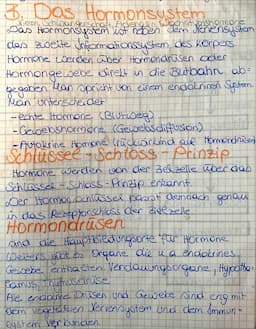 3. Das Hormonsystem
Das Hormonsystem ist neben dem Nervensystem
das zweite Informationssystem des Körpers
Hormone werden über Hormondrüsen oder
Hormongewebe direkt in die Blutbahn ab-
gegeben. Man spricht von einem endokrinen System
Man unterscheidet
- echte Hormone (Blutweg)
- Gewebshormone (Gewebsdiffusion)
- Autokrine Hormone
Schlüssel - Schloss - Prinzip
Hormone werden von der Zielzelle über das
Schlüssel - Schloss - Prinzip erkannt.
Der Hormonschlüssel passt demnach genau
in das Rezeptorschloss der Zielzelle
Hormondrüsen
sind die Hauptbildungsorte für Hormone
Weiters gibt es Organe die u.a endokrines
Gewebe enthalten Verdauungsorgane, Hypotha-
lamus, Thymusdrüse
Alle endokrine Drüsen und Gewebe sind eng mit
dem vegetativen Nervensystem und dem Immun-
system verbunden